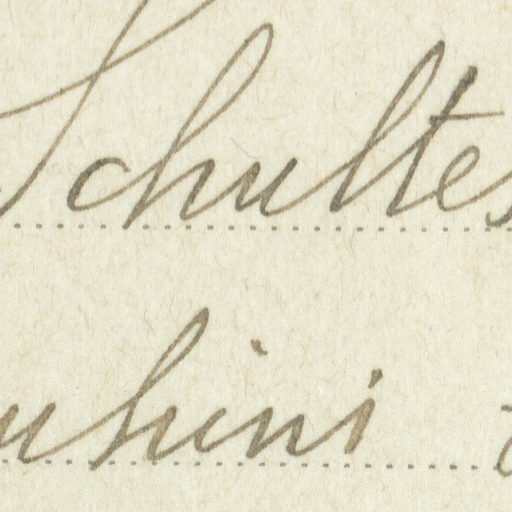 Schultes
uhini